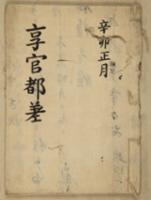 辛卯正月
享官都差